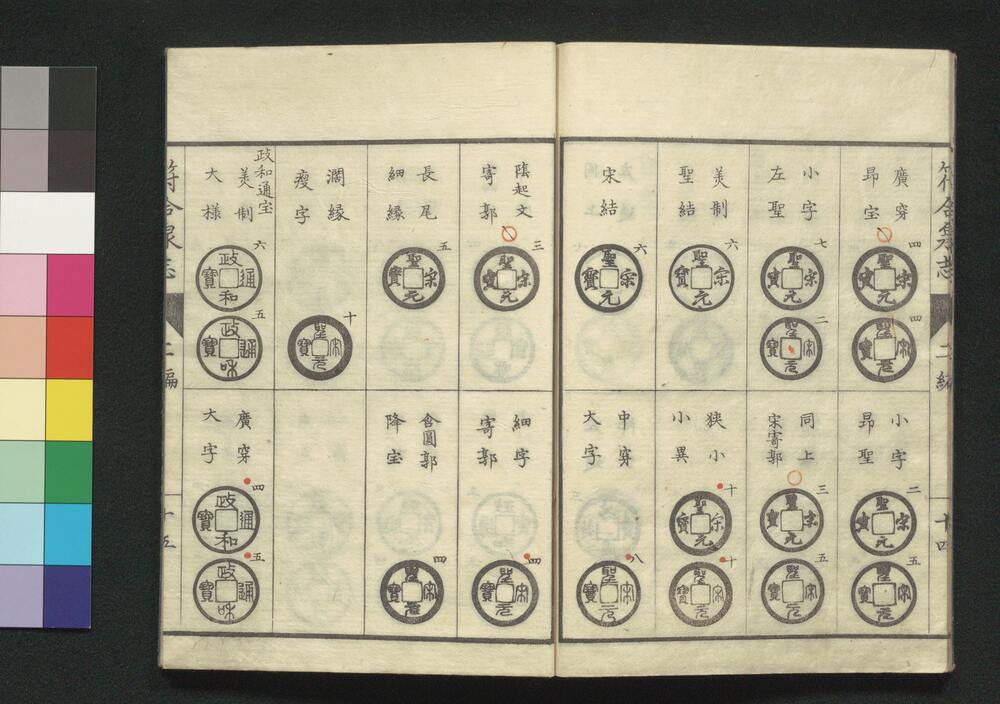 符合泉志
二編
十四
廣穿
昂宝
四
聖宋元寳
四
聖宋元寳
小字
左聖
七
聖宋元寳
二
聖宋元寳
美制
聖結
六
聖宋元寳
宋結
六
聖宋元寳
小字
昂聖
二
聖宋元寳
五
聖宋元寳
同上
宋寄郭
三
聖宋元寳
五
聖宋元寳
狹小
小異
十
聖宋元寳
十
聖宋元寳
中穿
大字
八
聖宋元寳
陰起文
寄郭
三
聖宋元寳
長尾
細縁
五
聖宋元寳
濶縁
瘦字
十
聖宋元寳
政和通宝
美制
大様
六
政和通寳
五
政和通寳
細字
寄郭
四
聖宋元寳
含圓郭
降宝
四
聖宋元寳
廣穿
大字
四
政和通寳
五
政和通寳
符合泉志
二編
十五